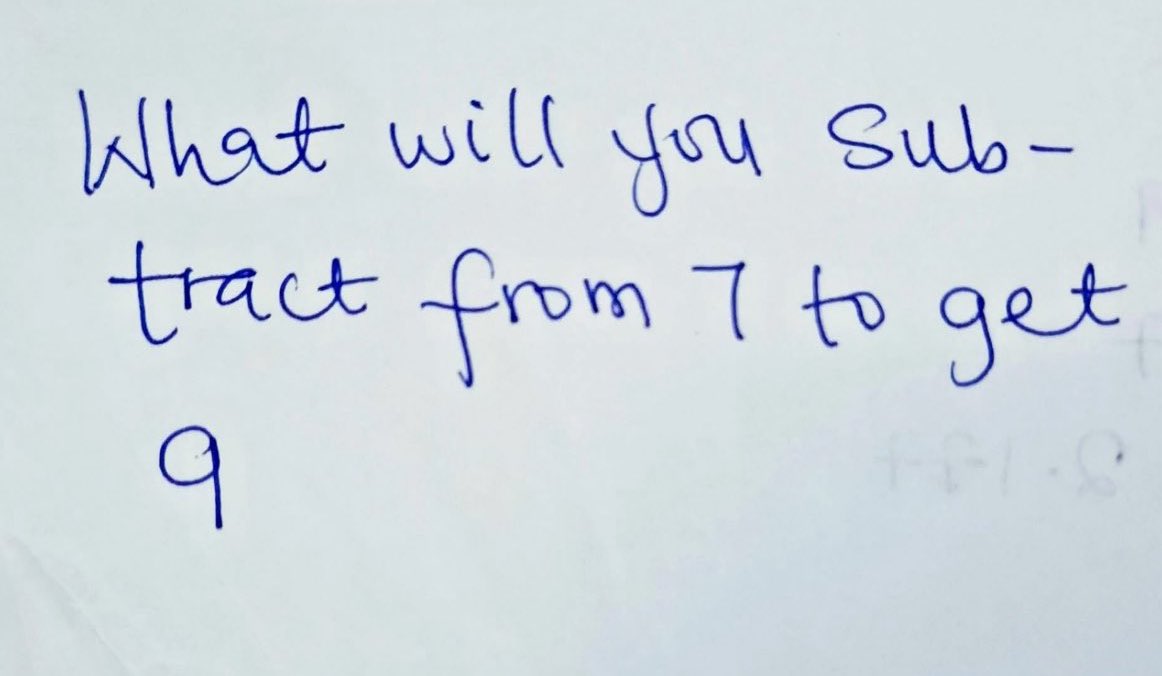 What will you sub-
tract from 7 to get
9